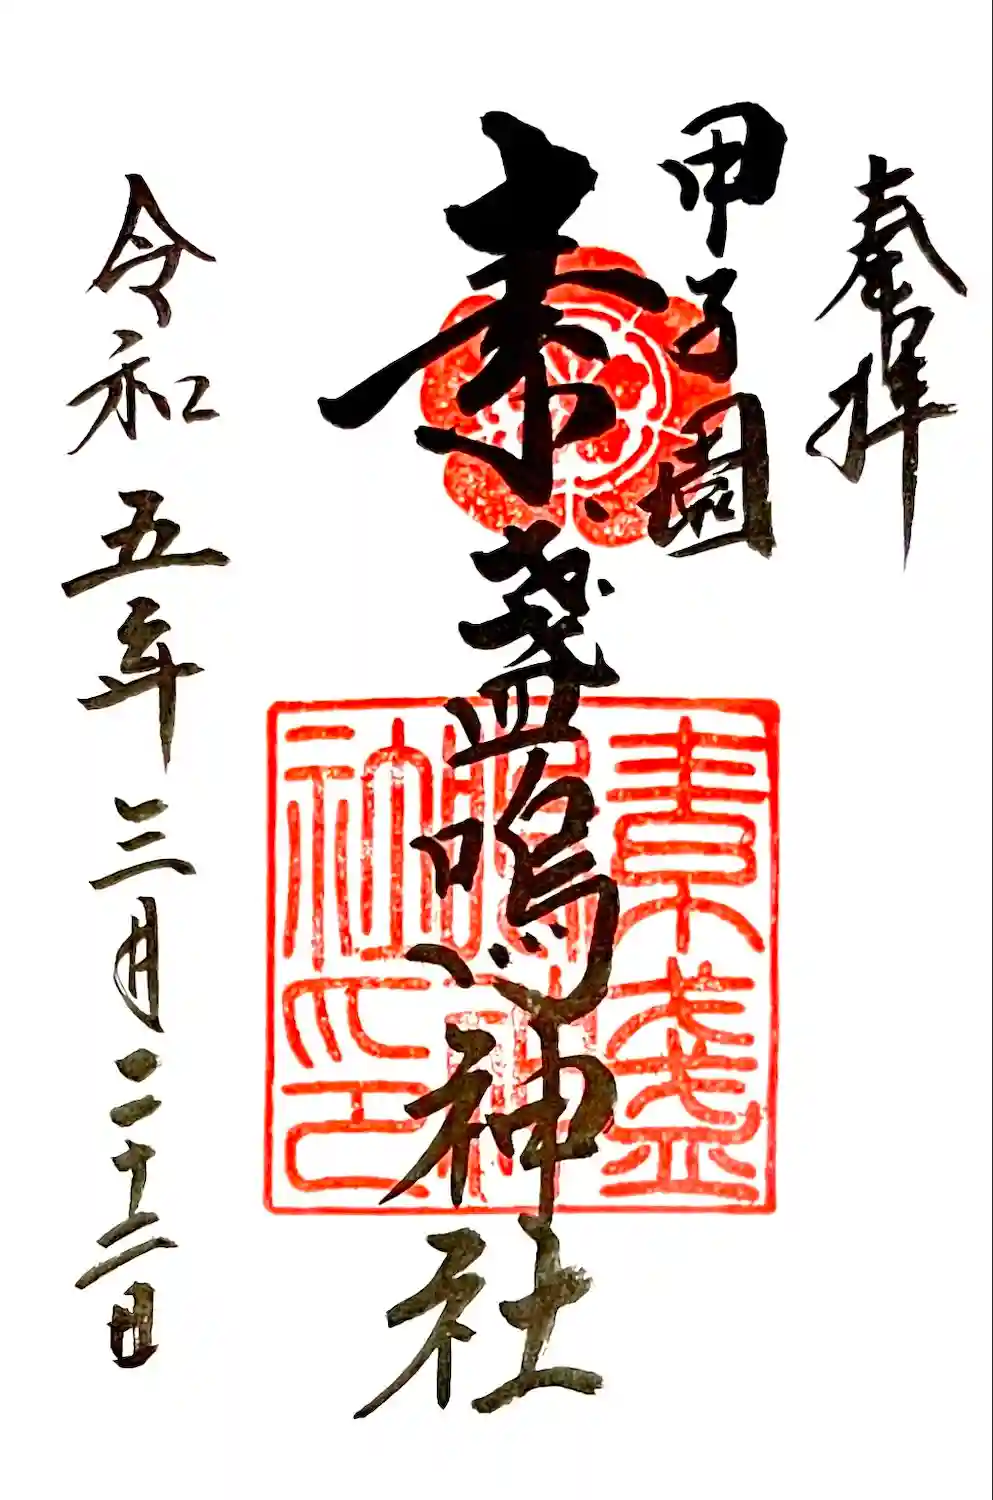 奉拝
甲子園
素盞嗚神社
令和五年三月二十二日
素盞
嗚神
社印